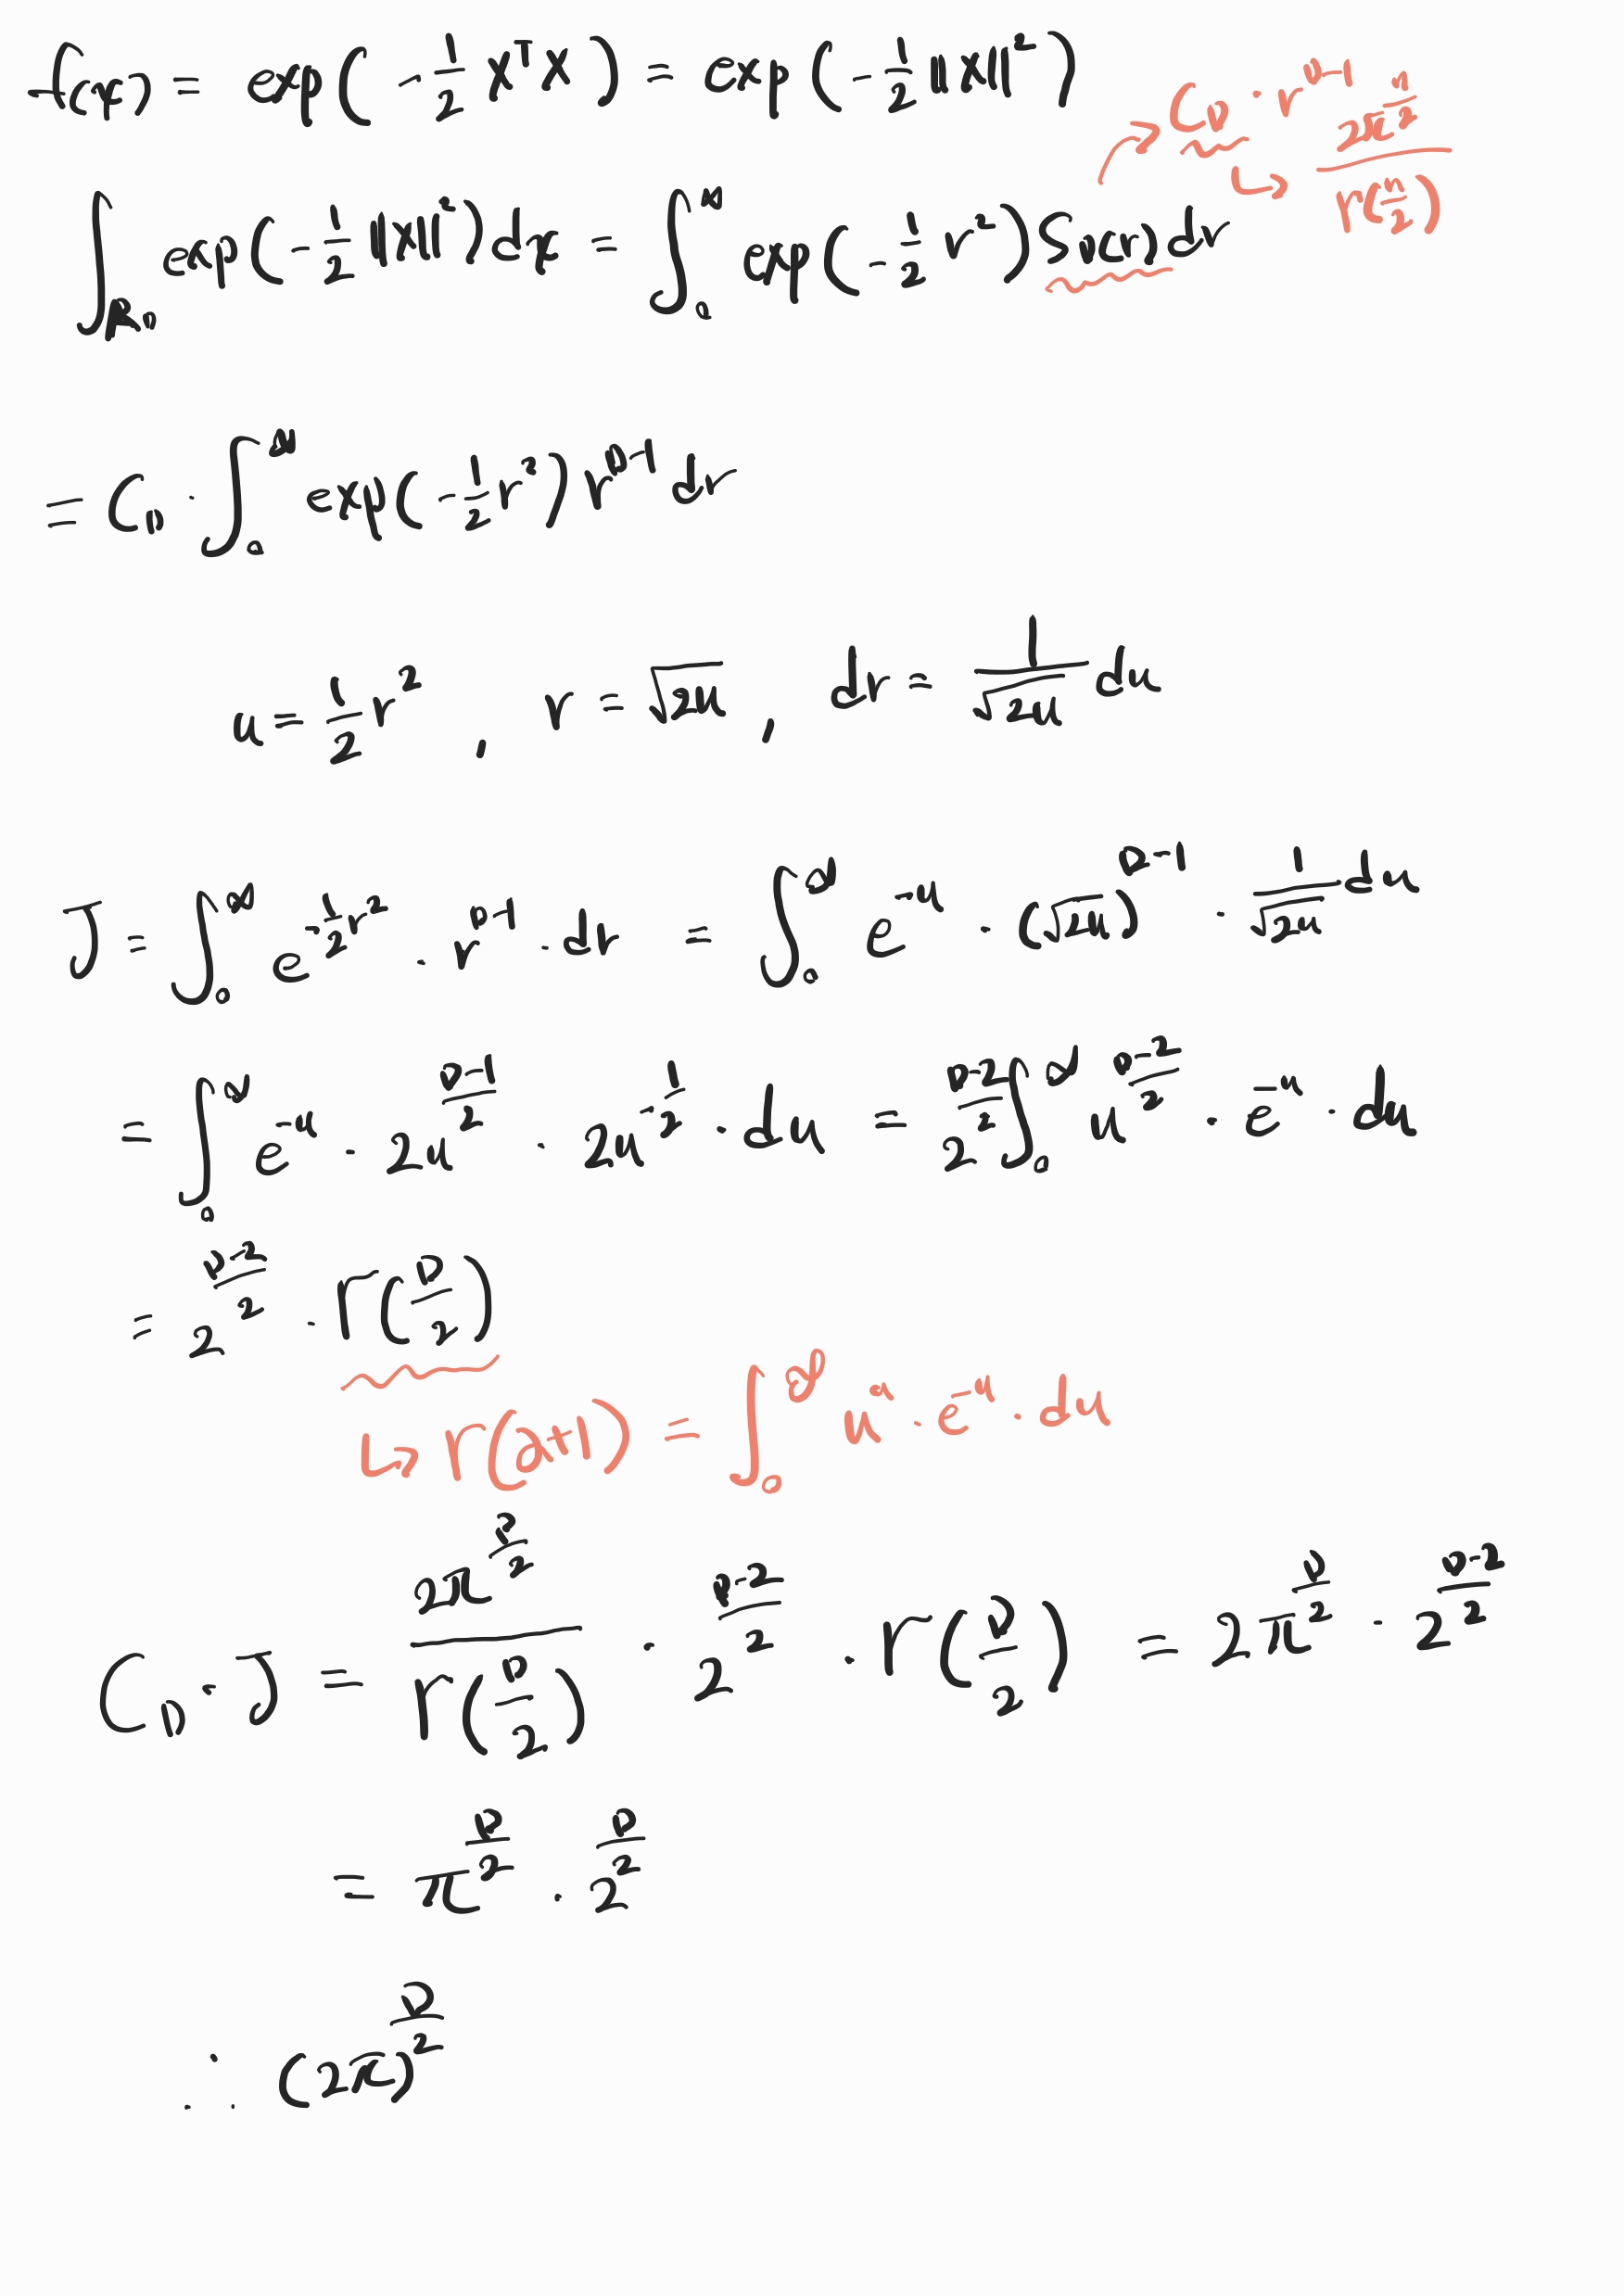 f(x) = exp(-1/2 xᵀx) = exp(-1/2 ||x||²)
→ C_D · r^(D-1)
↳ 2π^(n/2) / Γ(n/2)
∫_{R_D} exp(-1/2 ||x||²) dx = ∫_0^∞ exp(-1/2 r²) S_D(r) dr
= C_D · ∫_0^∞ exp(-1/2 r²) r^(D-1) dr
u = 1/2 r² , r = √(2u) , dr = 1/√(2u) du
J = ∫_0^∞ e^(-1/2 r²) · r^(D-1) · dr = ∫_0^∞ e^(-u) · (√(2u))^(D-1) · 1/√(2u) du
= ∫_0^∞ e^(-u) · 2u^((D-1)/2) · 2u^(-1/2) · du = 2^((D-2)/2) ∫_0^∞ u^((D-2)/2) · e^(-u) · du
= 2^((D-2)/2) · Γ(D/2)
↳ Γ(a+1) = ∫_0^∞ u^a · e^(-u) · du
C_D · J = 2π^(D/2) / Γ(D/2) · 2^((D-2)/2) · Γ(D/2) = 2π^(D/2) · 2^((D-2)/2)
= π^(D/2) · 2^(D/2)
∴ (2π)^(D/2)